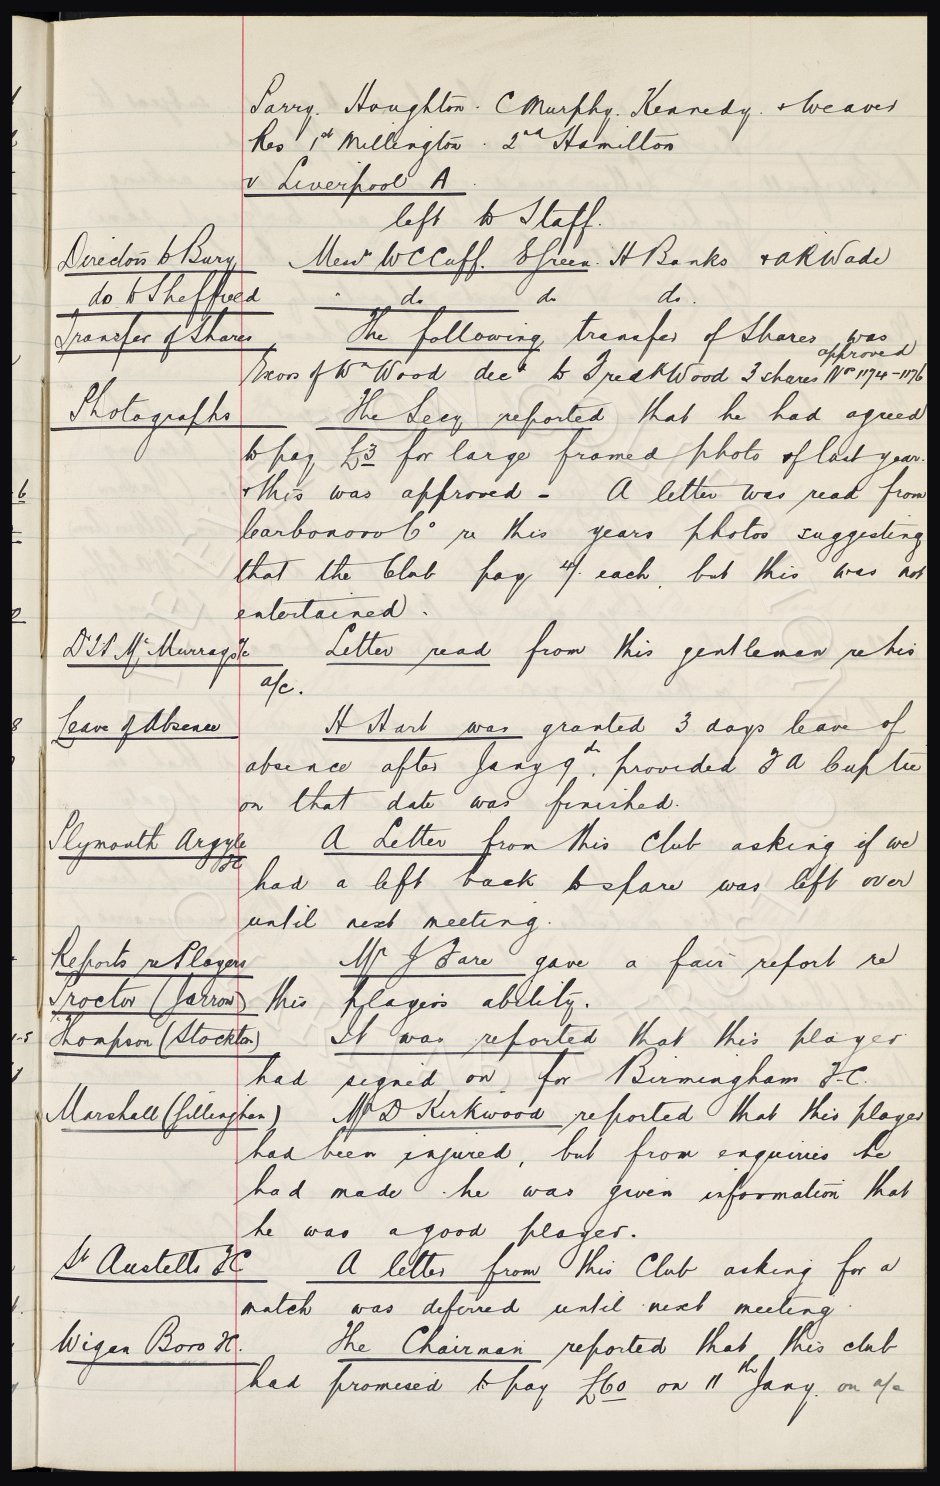 Parry. Houghton. C Murphy. Kennedy. & Weaver
Res 1st Millington. 2nd Hamilton
v Liverpool A.
left to Staff.
Directors to Bury Messrs W C Cuff. E Green. H Banks & A R Wade
do to Sheffield " do do do.
Transfer of Shares The following transfer of Shares was approved
Excors of Wm Wood decd to Fredk Wood 3 shares Nos 1174-1176
Photographs The Secy reported that he had agreed
to pay £3 for large framed photo of last year.
& this was approved - A letter was read from
Carbonora Co re this years photos suggesting
that the Club pay 4/- each, but this was not
entertained.
Dr J P McMurrays a/c Letter read from this gentleman re his
a/c.
Leave of Absence H Hart was granted 3 days leave of
absence after Jany 9th, provided F A Cup tie
on that date was finished.
Plymouth Argyle FC A Letter from this Club asking if we
had a left back to spare was left over
until next meeting.
Reports re Players Mr J Fare gave a fair report re
Proctor (Jarrow) this players ability.
Thompson (Stockton) It was reported that this player
had signed on for Birmingham F.C.
Marshall (Gillingham) Mr D Kirkwood reported that this player
had been injured, but from enquiries he
had made he was given information that
he was a good player.
St Austells FC A letter from this Club asking for a
match was deferred until next meeting.
Wigan Boro FC. The Chairman reported that this club
had promised to pay £60 on 11th Jany. on a/c